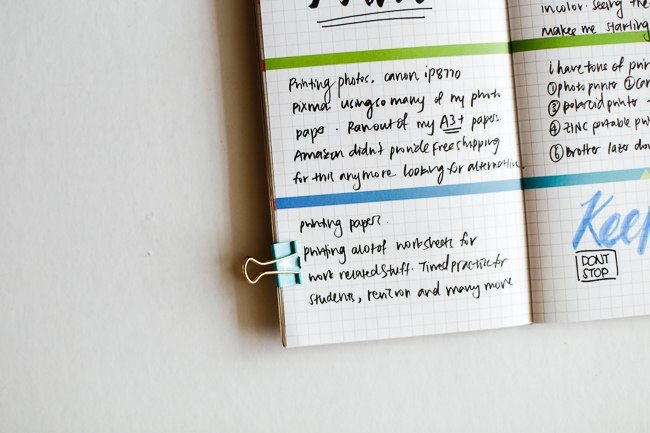 Printing photos. canon ip8770
Pixma using so many of my photo
paper. Ran out of my A3+ papers
Amazon didn't provide free shipping
for this anymore looking for alternative
printing papers.
printing alot of worksheets for
work related stuff. Timed practice for
students, and many more
in color. Seeing the
makes me starting
i have tons of prin
① photo printer ② Can
③ polaroid printer
④ ZINC portable prin
⑥ Brother lazer dow
Keep
DONT
STOP